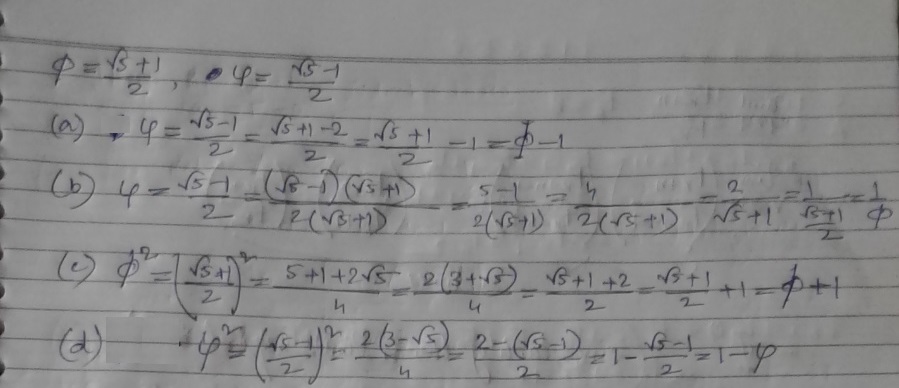 ϕ = (√5+1)/2, φ = (√5-1)/2
(a) φ = (√5-1)/2 = (√5+1-2)/2 = (√5+1)/2 - 1 = ϕ - 1
(b) φ = (√5-1)/2 = (√5-1)(√5+1)/2(√5+1) = (5-1)/2(√5+1) = 4/2(√5+1) = 2/(√5+1) = 1/((√5+1)/2) = 1/ϕ
(c) ϕ² = ((√5+1)/2)² = (5+1+2√5)/4 = 2(3+√5)/4 = (√5+1+2)/2 = (√5+1)/2 + 1 = ϕ + 1
(d) φ² = ((√5-1)/2)² = 2(3-√5)/4 = (2-(√5-1))/2 = 1 - (√5-1)/2 = 1 - φ